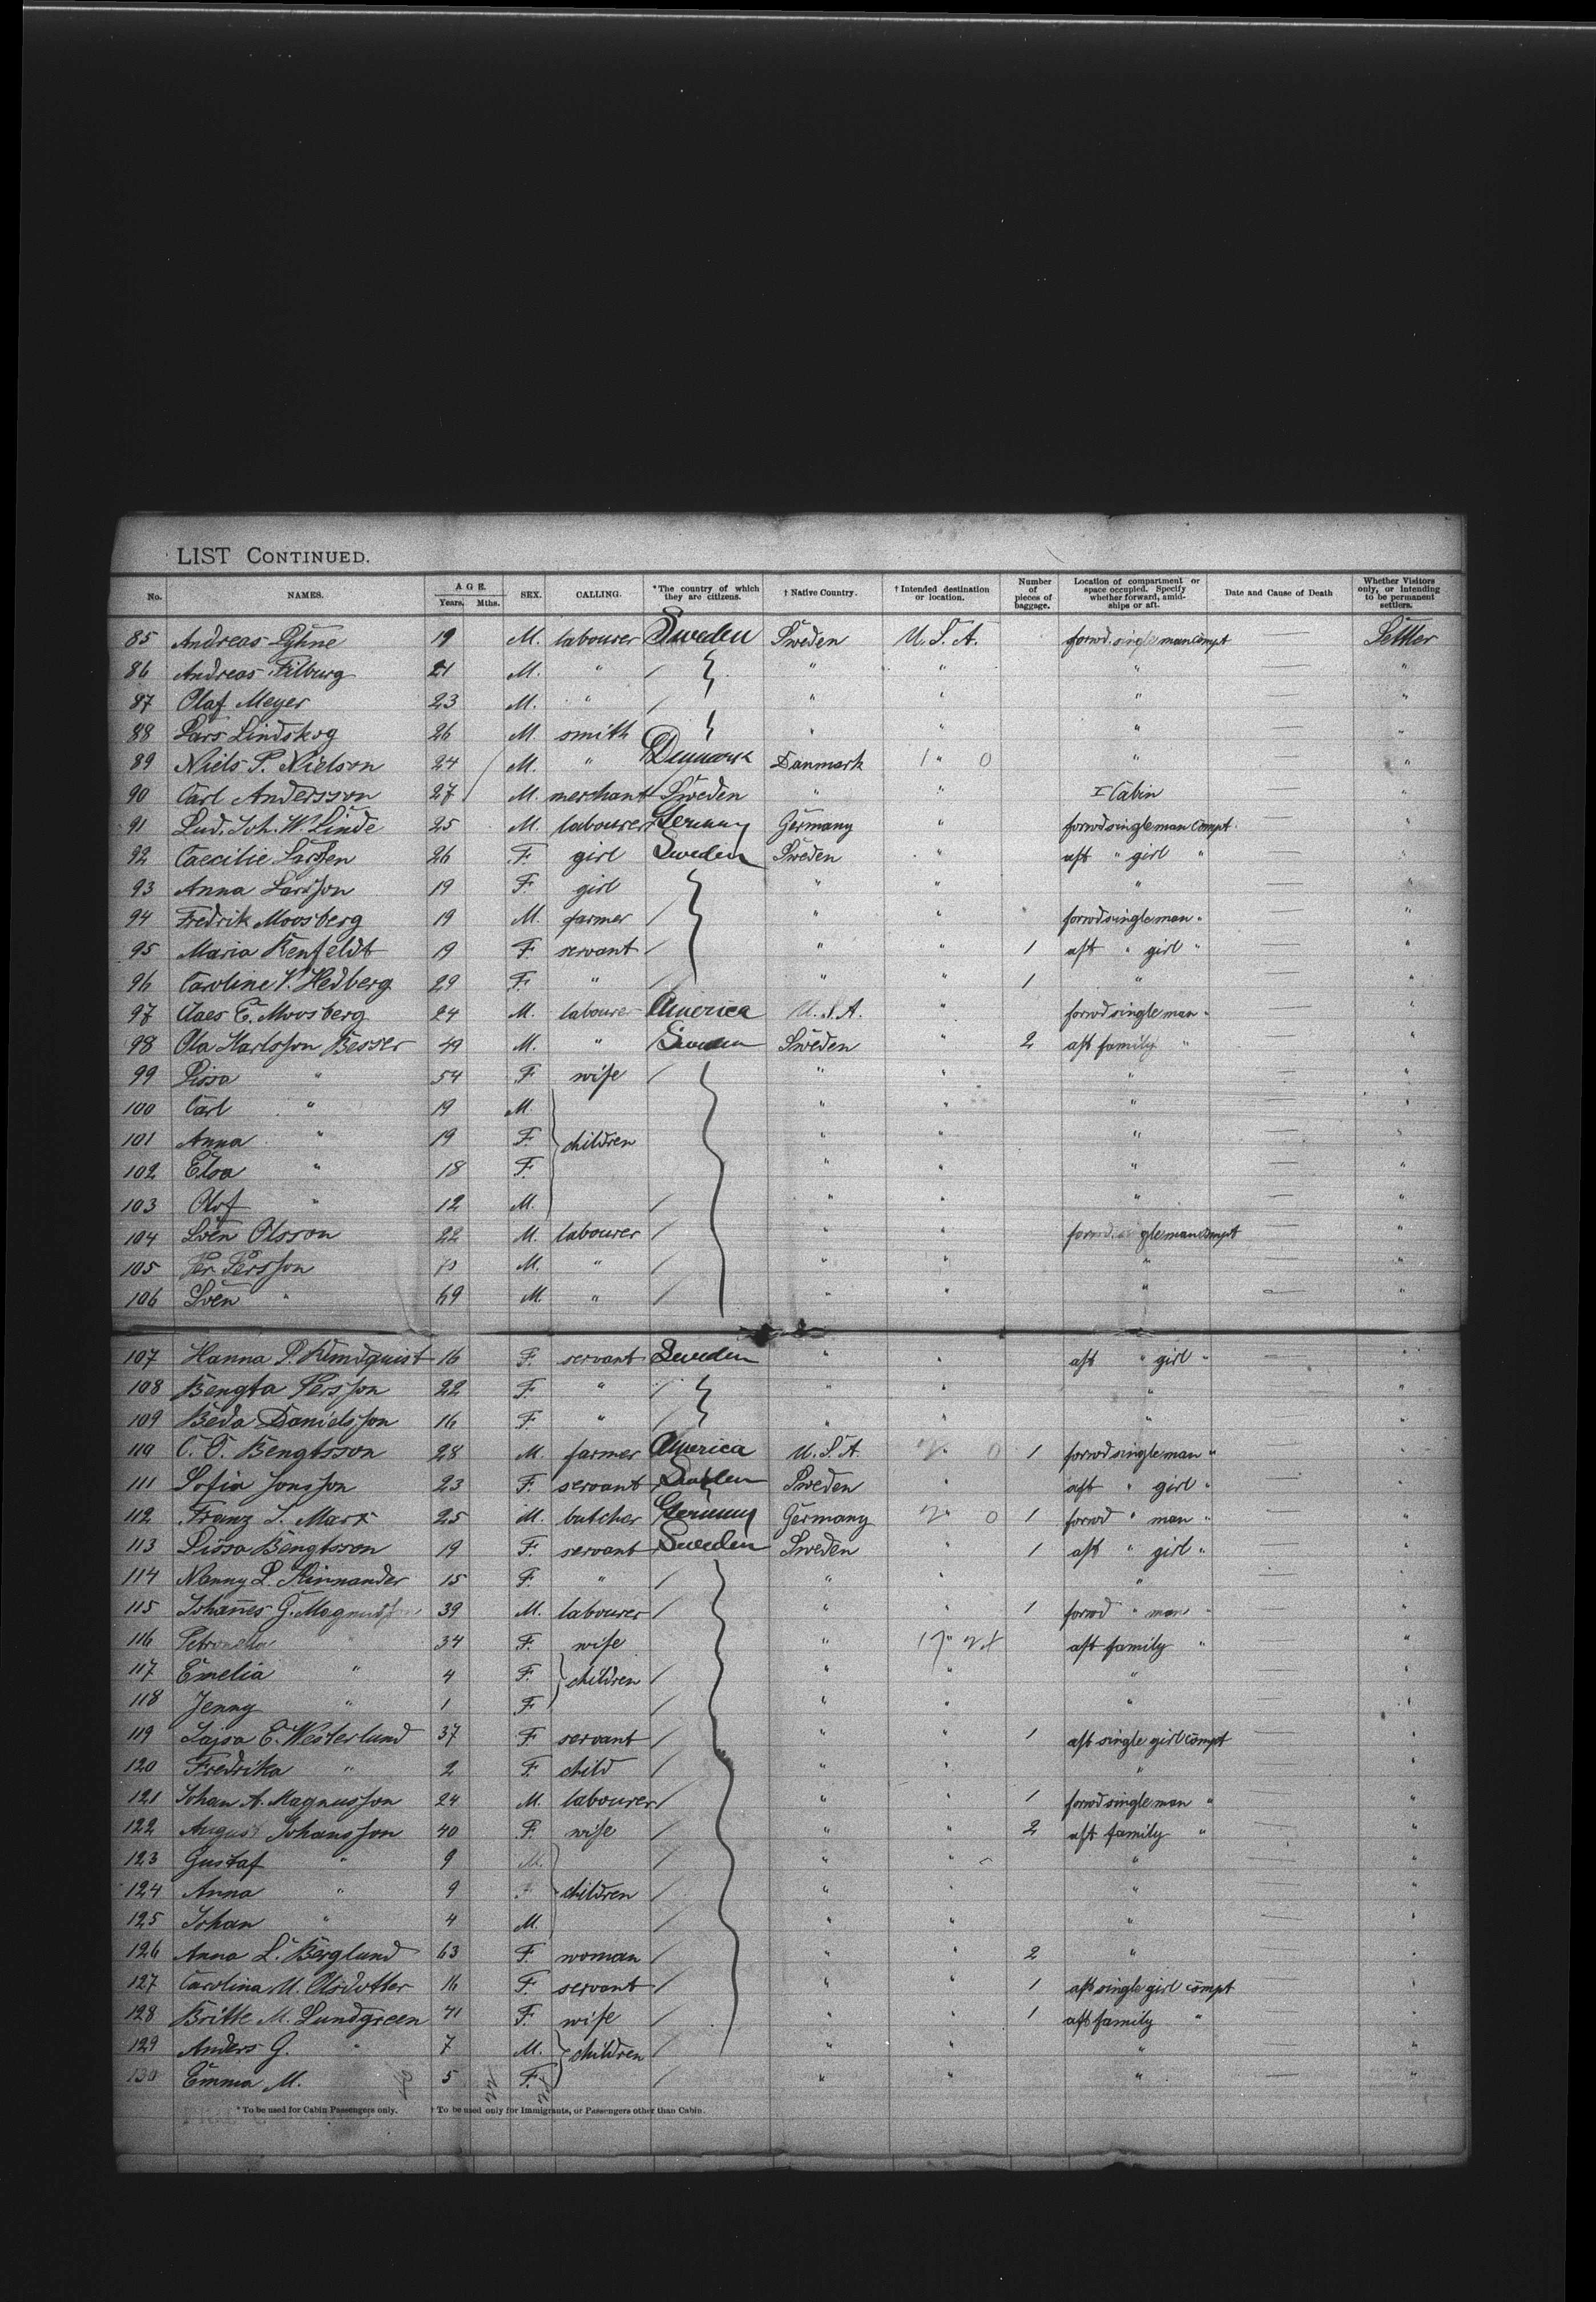 LIST CONTINUED.
No. NAMES. AGE. Years. Mths. SEX. CALLING. *The country of which they are citizens. † Native Country. † Intended destination or location. Number of pieces of baggage. Location of compartment or space occupied. Specify whether forward, amidships or aft. Date and Cause of Death Whether Visitors only, or Intending to be permanent settlers.
85 Andreas 19 M. labourer Sweden Sweden U. S. A. forwd. single man compt Settler
86 Andreas Filburg 21 M. " " " " "
87 Olaf Meyer 23 M. " " " " "
88 Lars Lindskog 26 M. smith " " " "
89 Niels P. Nielson 24 M. " Denmark Danmark " " "
90 Carl Andersson 27 M. merchant Sweden " " I Cabin "
91 Lud. Joh. W. Linde 25 M. labourer Germany Germany " forwd single man compt. "
92 Caecilie Larsen 26 F. girl Sweden Sweden " aft " girl " "
93 Anna Larsson 19 F. girl " " " "
94 Fredrik Moosberg 19 M. farmer " " forwd single man " "
95 Maria Renfeldt 19 F. servant " " 1 aft " girl " "
96 Caroline V. Hedberg 29 F. " " " 1 " "
97 Claes E. Moosberg 24 M. labourer America U. S. A. " forwd single man " "
98 Ola Karlsson Besser 49 M. " Sweden Sweden " 2 aft family " "
99 Lissa " 54 F. wife " " " "
100 Carl " 19 M. " " " "
101 Anna " 19 F. children " " " "
102 Elsa " 18 F. " " " "
103 Olof " 12 M. " " " "
104 Sven Olsson 22 M. labourer " " forwd. single man compt "
105 Per Persson M. " " " " "
106 Sven " 69 M. " " " "
107 Hanna P. 16 F. servant Sweden " " aft " girl " "
108 Bengta Persson 22 F. " " " " "
109 Beda Danielsson 16 F. " " " " "
110 C. O. Bengtsson 28 M. farmer America U. S. A. " 1 forwd single man " "
111 Sofia Jonsson 23 F. servant Sweden Sweden " aft " girl " "
112 Franz S. Marx 25 M. butcher Germany Germany " 1 forwd " man " "
113 Lissa Bengtsson 19 F. servant Sweden Sweden " 1 aft " girl " "
114 Nanny L. 15 F. " " " " "
115 Johannes G. Magnusson 39 M. labourer " " 1 forwd " man " "
116 Petronella " 34 F. wife " " aft family " "
117 Emelia " 4 F. children " " " "
118 Jenny " 1 F " " " "
119 Cajsa E. Westerlund 37 F servant " " 1 aft single girl compt "
120 Fredrika " 2 F. child " " " "
121 Johan A. Magnusson 24 M. labourer " " 1 forwd single man " "
122 August Johansson 40 F. wife " " 2 aft family " "
123 Gustaf " 9 M. " " " "
124 Anna " 9 children " " " "
125 Johan " 4 M. " " " "
126 Anna L. Berglund 63 F. woman " " 2 " "
127 Carolina M. Olsdotter 16 F. servant " " 1 aft single girl compt "
128 Britte M. Lundgreen 41 F. wife " " 1 aft family " "
129 Anders G. " 7 M. children " " " "
130 Emma M. 5 F. " " " "
* To be used for Cabin Passengers only. † To be used only for Immigrants, or Passengers other than Cabin.